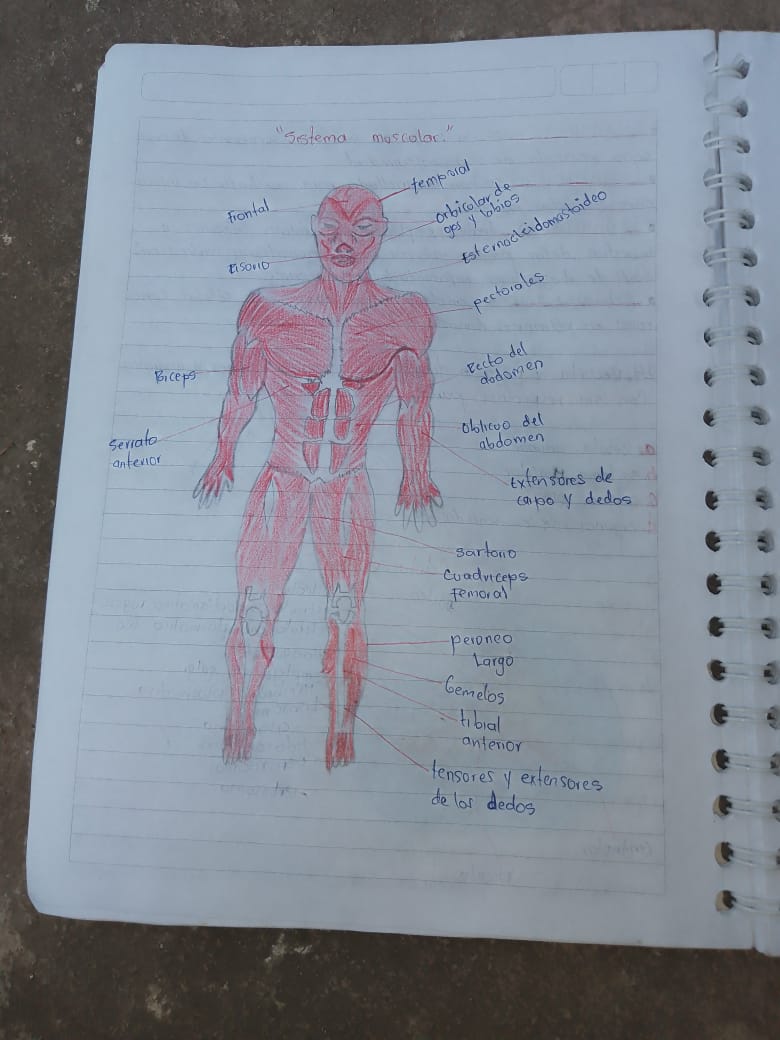 "Sistema moscolar."
temporal
Frontal
orbicolar de
ojos y labios
Esternocleidomastoideo
risorio
pectorales
Recto del
abdomen
Biceps
oblicuo del
abdomen
serrato
anterior
Extensores de
carpo y dedos
sartorio
Cuadriceps
femoral
peroneo
Largo
Gemelos
tibial
anterior
tensores y extensores
de los dedos